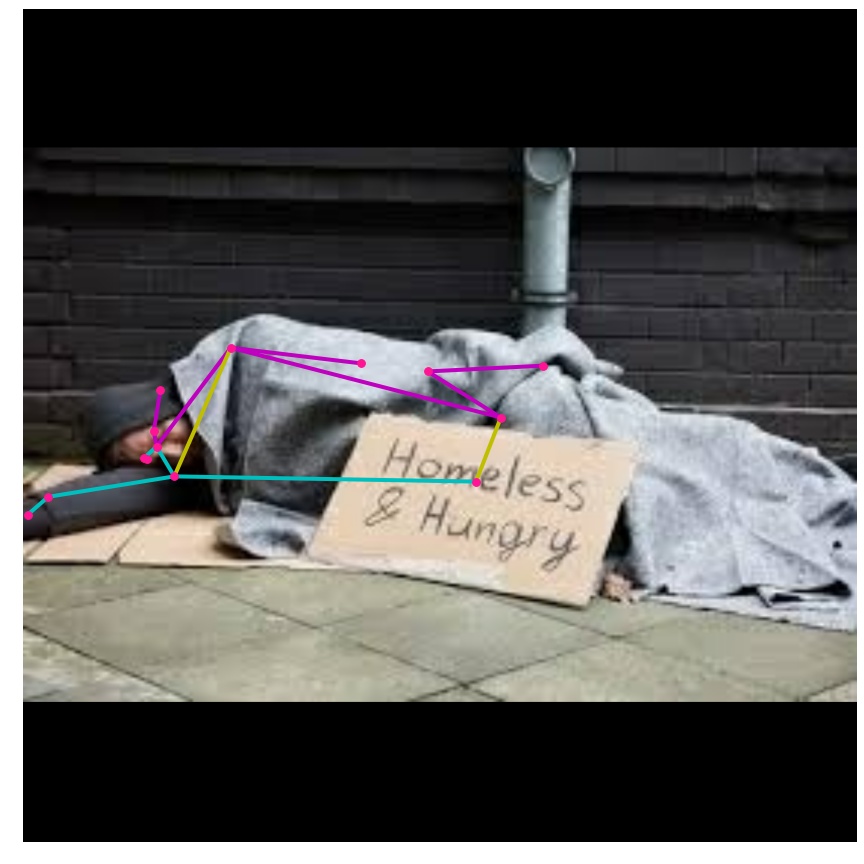 Homeless
& Hungry